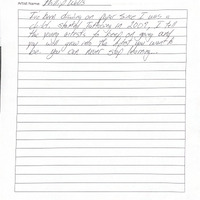 Artist Name: Phillip Lewis
I've been drawing on paper since I was a
child. started Tattooing in 2009, I tell
the young artists to keep on going and
you will grow into the Artist you want to
be you can never stop learning.